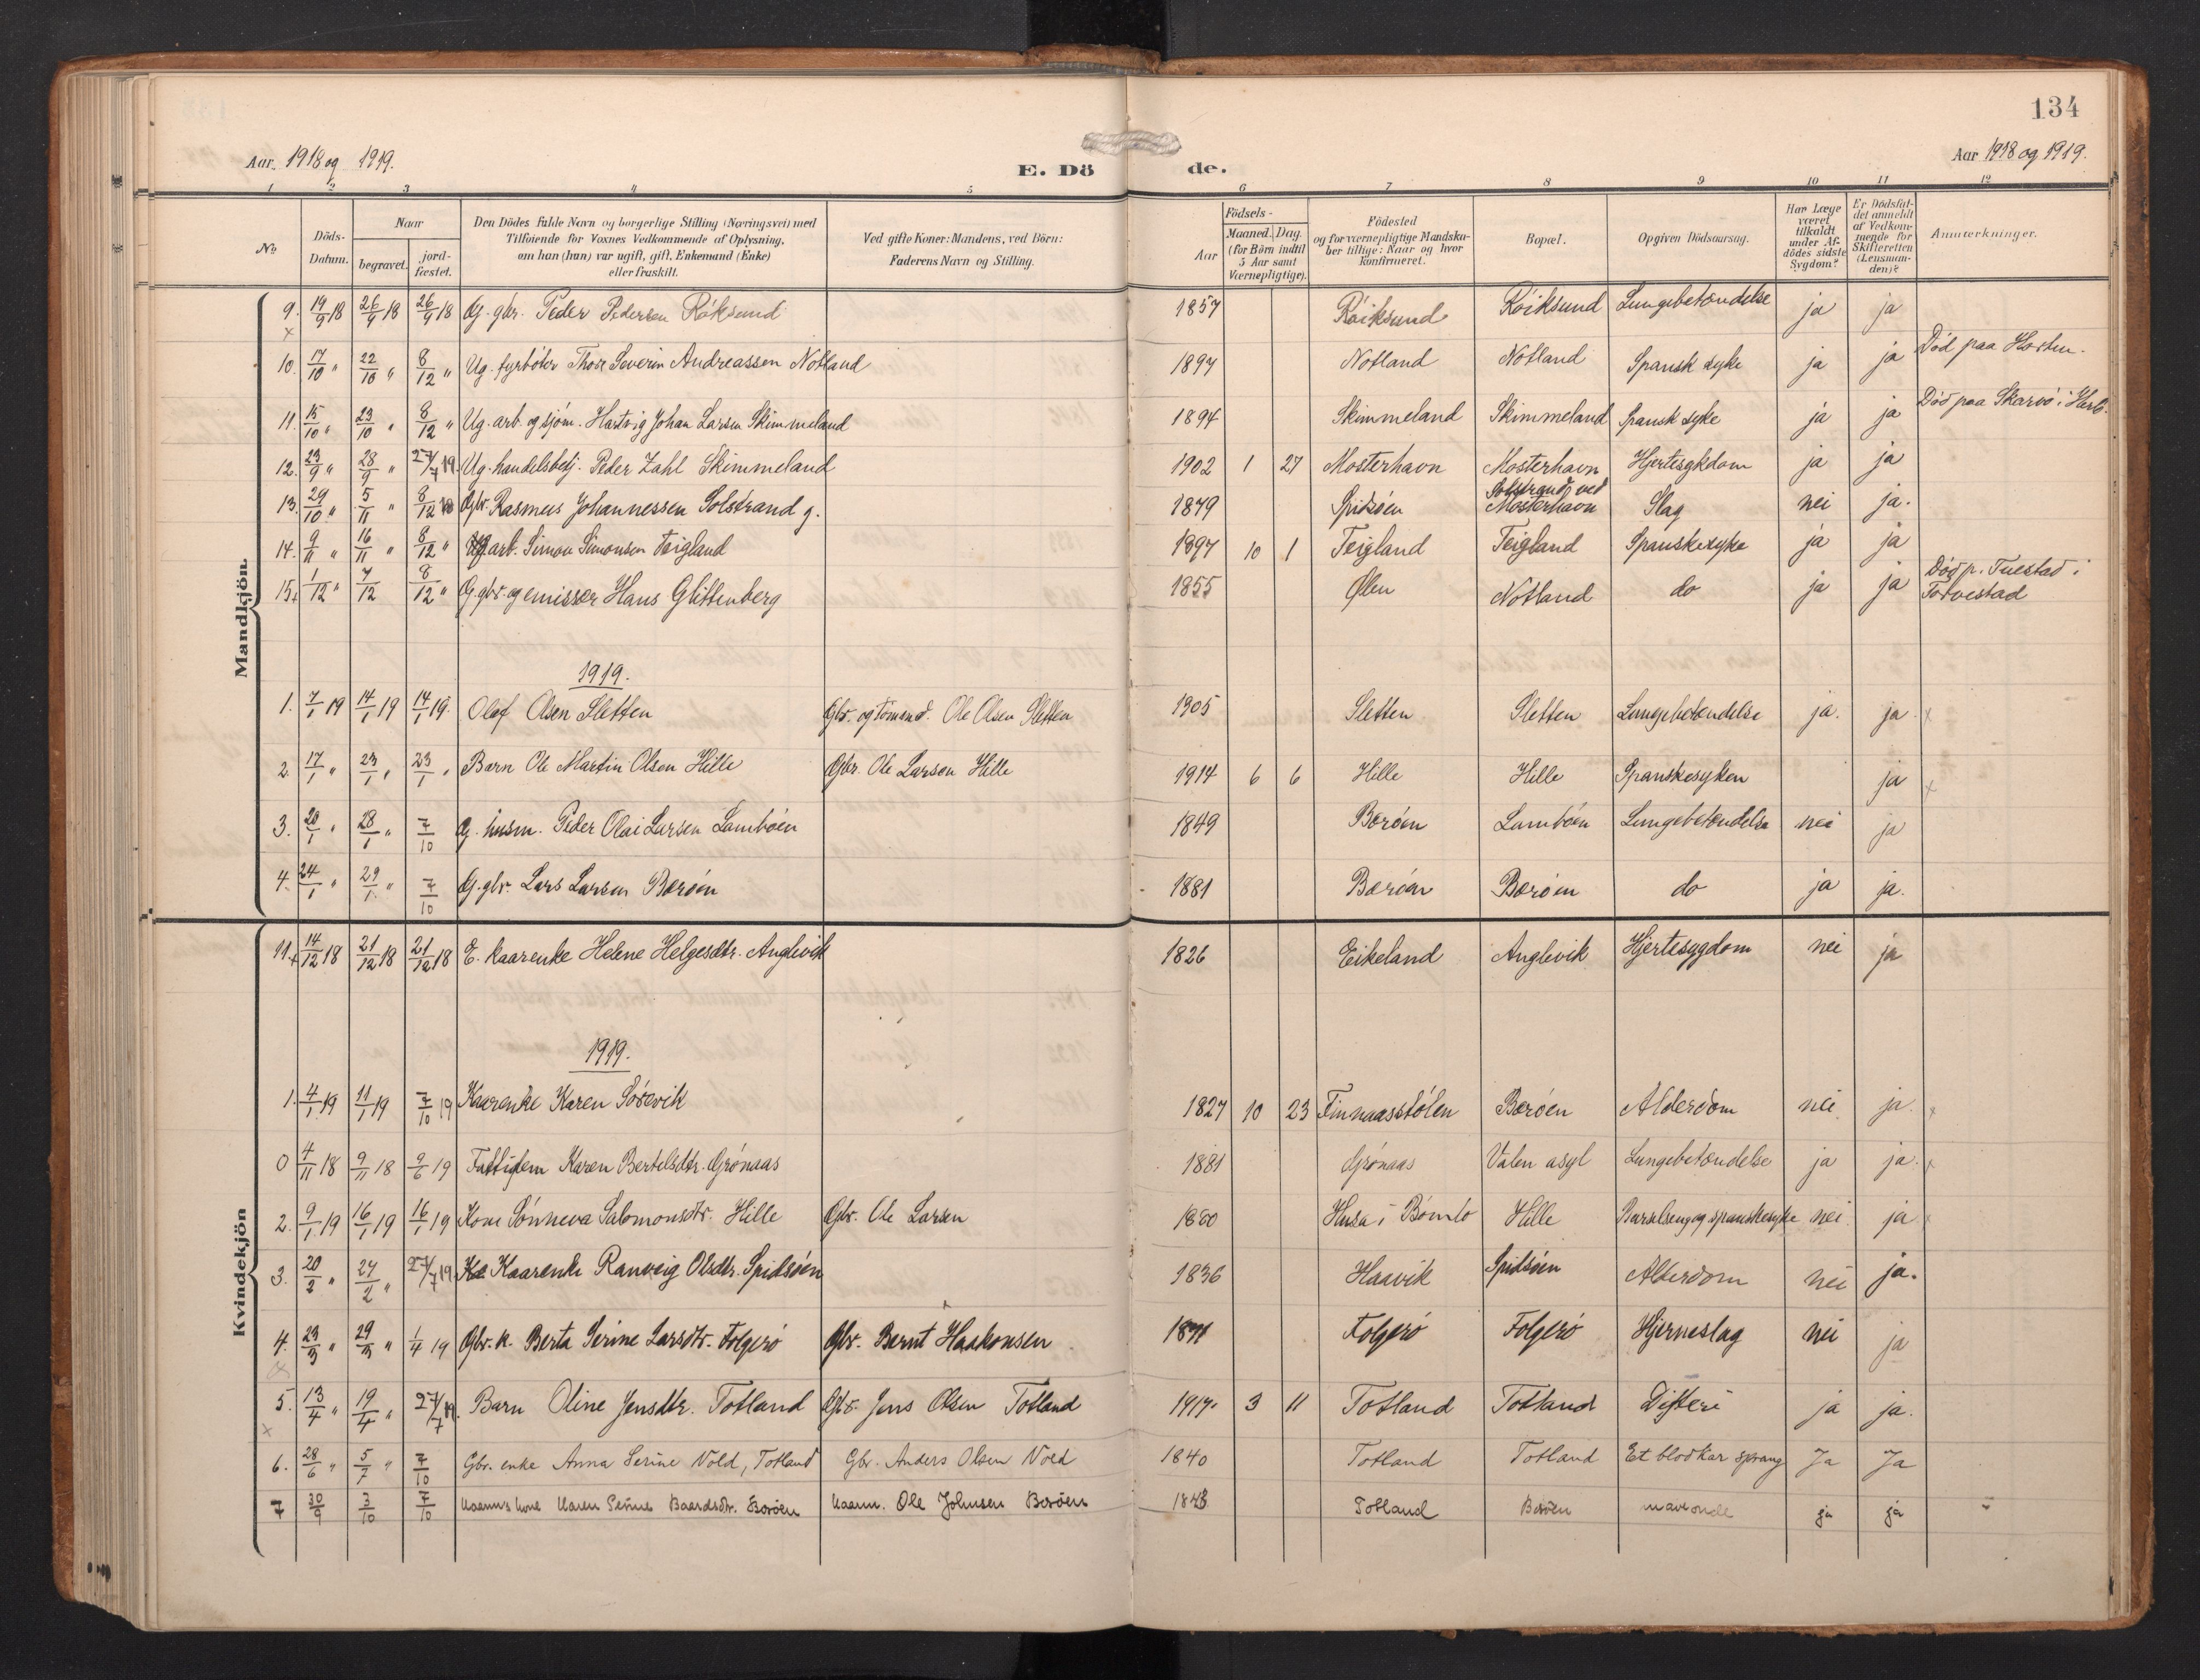 134
Aar 1918 og 1919.
E. Döde.
Aar 1918 og 1919.
1 2 3 4 5 6 7 8 9 10 11 12
No
Döds-Datum.
Naar
begravet.
jord-fæstet.
Den Dödes fulde Navn og borgerlige Stilling (Næringsvei) med
Tilföiende for Voxnes Vedkommende af Oplysning,
om han (hun) var ugift, gift, Enkemand (Enke)
eller fraskilt.
Ved gifte Koner: Mandens, ved Börn:
Faderens Navn og Stilling.
Födsels-
Aar
Maaned. Dag.
(for Börn indtil
5 Aar samt
Værnepligtige).
Födested
og for værnepligtige Mandska-
ber tillige: Naar og hvor
konfirmeret.
Bopæl.
Opgiven Dödsaarsag.
Har Læge
været
tilkaldt
under Af-
dödes sidste
Sygdom?
Er Dödsfal-
det anmeldt
af Vedkom-
mende for
Skifteretten
(Lensman-
den)?
Anmerkninger.
Mandkjön.
9. 19/9 18 26/9 18 26/9 18 G. gbr. Peder Pedersen Röksund 1857 Röiksund Röiksund Lungebetændelse ja ja
10. 17/10 " 22/10 " 8/12 " Ug. fyrböter Thor Severin Andreassen Notland 1897 Notland Notland Spansk syke ja ja Död paa Horten.
11. 15/10 " 23/10 " 8/12 " Ug. arb. og sjöm. Hartvig Johan Larsen Skimmeland 1894 Skimmeland Skimmeland Spansk syke ja ja Död paa Skarvö i
12. 23/9 " 28/9 " 27/7 19. Ug. handelsbetj. Peder Zahl Skimmeland 1902 1 27 Mosterhavn Mosterhavn Hjertesykdom ja ja
13. 29/10 " 5/11 " 8/12 18 Gbr. Rasmus Johannessen Solstrand g. 1879 Spidsöen Solstrand ved Mosterhavn Slag nei ja.
14. 9/11 " 16/11 " 8/12 " Ug arb. Simon Simonsen Teigland 1897 10 1 Teigland Teigland Spanskesyke ja ja
15. 1/12 " 7/12 8/12 " G. gbr. og emissær Hans Glittenberg 1855 Ölen Notland do ja ja Död p. Tuestad i
Torvestad
1919.
1. 7/1 19 14/1 19 14/1 19. Olaf Olsen Sletten Gbr. og tömmd. Ole Olsen Sletten 1905 Sletten Sletten Lungebetændelse ja. ja.
2. 17/1 " 23/1 " 23/1 " Barn Ole Martin Olsen Hille Gbr. Ole Larsen Hille 1914 6 6 Hille Hille Spanskesyken ja
3. 20/1 " 28/1 " 7/10 G. husm. Peder Olai Larsen Lamböen 1849 Beröen Lamböen Lungebetændelse nei ja
4. 24/1 " 29/1 " 7/10 G. gbr. Lars Larsen Beröen 1881 Beröen Beröen do ja ja.
Kvindekjön
11. 14/12 18 21/12 18 21/12 18 E. kaarenke Helene Helgesdtr. Anglevik 1826 Eikeland Anglevik Hjertesygdom nei ja
1919.
1. 4/1 19 11/1 19 7/10 19 Kaarenke Karen Sörevik 1827 10 23 Finnaasstölen Beröen Alderdom nei ja.
0 4/11 18 9/11 18 9/6 19 Fattiglem Karen Bertelsdtr. Grönaas 1881 Grönaas Valen asyl Lungebetændelse ja ja.
2. 9/1 19 16/1 19 16/1 19 Kone Sönneva Salomonsdtr. Hille Gbr. Ole Larsen 1880 Husa i Bömlo Hille Barselseng og spanskesyke nei ja
3. 20/2 " 27/2 " 27/7 19 Kaarenke Ranveig Olsdtr. Spidsöen 1836 Haavik Spidsöen Alderdom nei ja.
4. 23/3 " 29/3 " 1/4 19 Gbr. k. Berta Serine Larsdtr. Folgerö Gbr. Bernt Haakonsen 1871 Folgerö Folgerö Hjerneslag nei ja
5. 13/4 " 19/4 " 27/7 19. Barn Oline Jensdtr. Totland Gbr. Jens Olsen Totland 1917. 3 11 Totland Totland Difteri ja ja.
6. 28/6 " 5/7 " 7/10 Gbr. enke Anna Serine Vold, Totland Gbr. Anders Olsen Vold 1840 Totland Totland Et blodkar sprang Ja Ja
7 30/9 3/10 7/10 Kaarm.s kone Karen Serine Baardsdtr. Beröen Kaarm. Ole Johnsen Beröen 1843 Totland Beröen maveonde ja ja